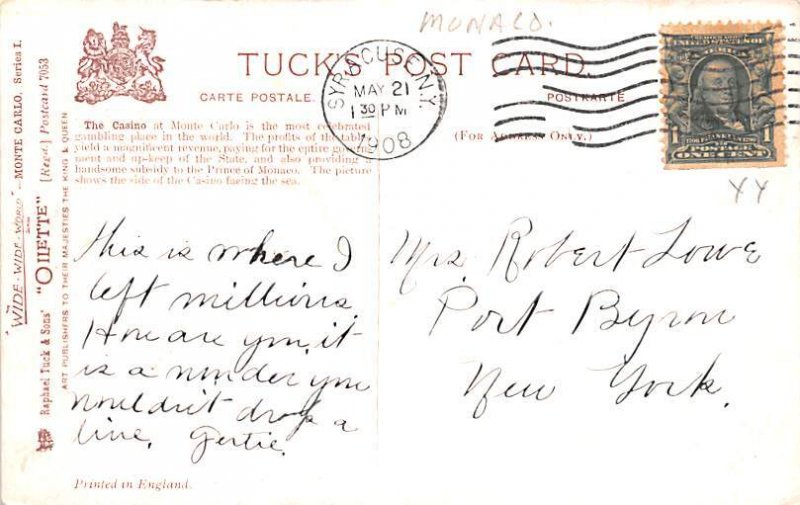 MONACO.
TUCK'S POST CARD.
CARTE POSTALE.
POSTKARTE
(FOR ADDRESS ONLY.)
SYRACUSE, N.Y.
MAY 21
1 30 PM
1908
1
ONE CENT
YY
"WIDE-WIDE-WORLD" MONTE CARLO. Series I.
Raphael Tuck & Sons' "OILETTE" [Regd.] Postcard 7053
ART PUBLISHERS TO THEIR MAJESTIES THE KING & QUEEN
The Casino at Monte Carlo is the most celebrated
gambling place in the world. The profits of the tables
yield a magnificent revenue, paying for the entire govern-
ment and up-keep of the State, and also providing a
handsome subsidy to the Prince of Monaco. The picture
shows the side of the Casino facing the sea.
This is where I
left millions.
How are you, it
is a wonder you
wouldn't drop a
line. Gertie.
Mrs. Robert Lowe
Port Byron
New York.
Printed in England.